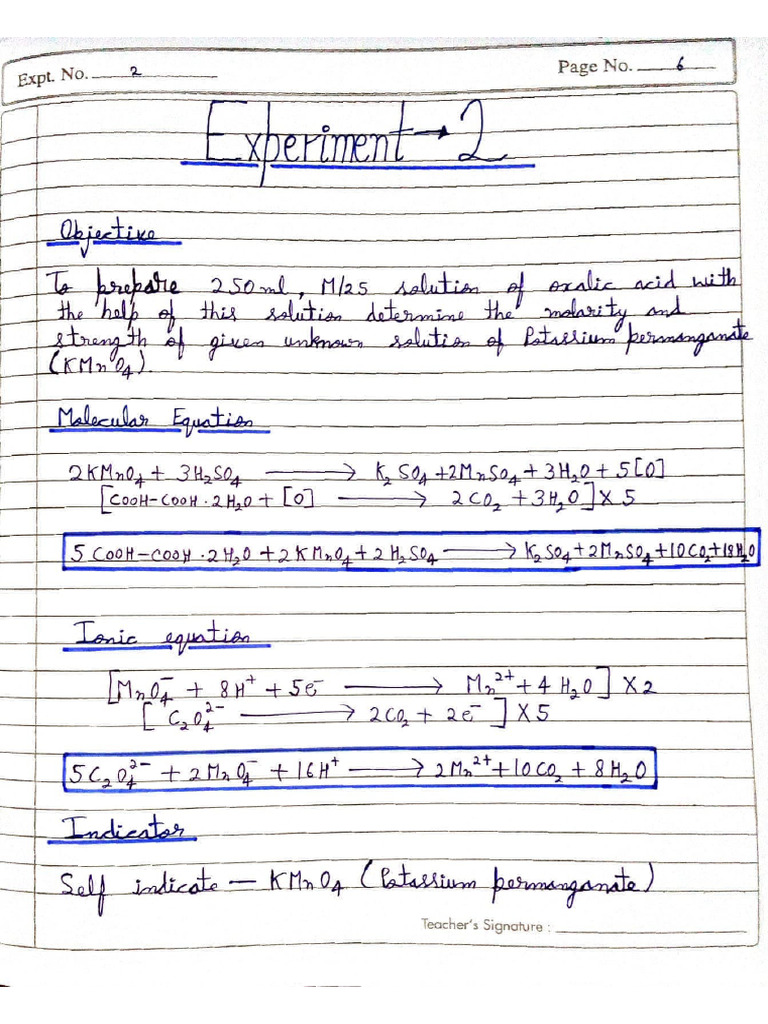 Expt. No. 2
Page No. 6
Experiment → 2
Objective
To prepare 250ml, M/25 solution of oxalic acid with
the help of this solution determine the molarity and
strength of given unknown solution of Potassium permanganate
(KMnO₄)
Molecular Equation
2KMnO₄ + 3H₂SO₄ ⟶ K₂SO₄ + 2MnSO₄ + 3H₂O + 5[O]
[COOH-COOH·2H₂O + [O] ⟶ 2CO₂ + 3H₂O] X 5
5COOH-COOH·2H₂O + 2KMnO₄ + 2H₂SO₄ ⟶ K₂SO₄ + 2MnSO₄ + 10CO₂ + 18H₂O
Ionic equation
[MnO₄⁻ + 8H⁺ + 5e⁻ ⟶ Mn²⁺ + 4H₂O] X 2
[C₂O₄²⁻ ⟶ 2CO₂ + 2e⁻] X 5
5C₂O₄²⁻ + 2MnO₄⁻ + 16H⁺ ⟶ 2Mn²⁺ + 10CO₂ + 8H₂O
Indicator
Self indicate — KMnO₄ (Potassium permanganate)
Teacher's Signature :